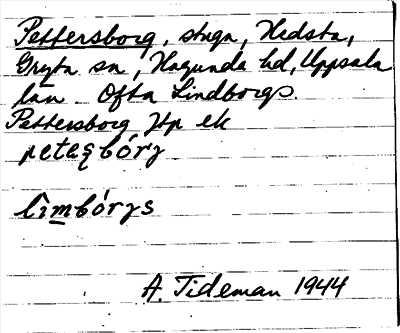 Pettersborg, stuga, Hedsta,
Gryta sn, Hagunda hd, Uppsala
län Ofta Lindborgs.
Pettersborg Jfp ek
peteʂbórj
lìmbórjs
A. Tideman 1944